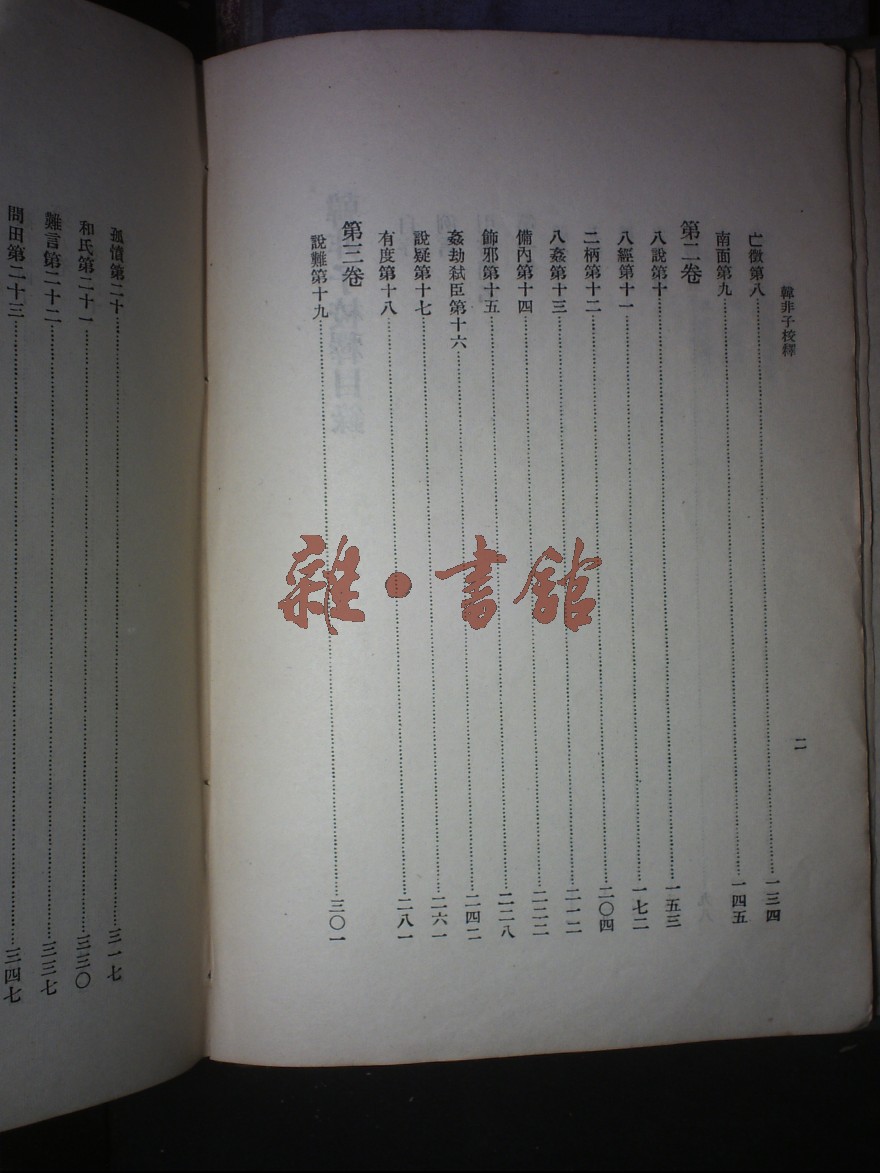 韓非子校釋
二
亡徵第八……一三四
南面第九……一四五
第二卷
八說第十……一五三
八經第十一……一七二
二柄第十二……二〇四
八姦第十三……二一二
備內第十四……二二二
飾邪第十五……二二八
姦劫弒臣第十六……二四二
說疑第十七……二六一
有度第十八……二八一
第三卷
說難第十九……三〇一
孤憤第二十……三一七
和氏第二十一……三三〇
難言第二十二……三三七
問田第二十三……三四七
雜·書館